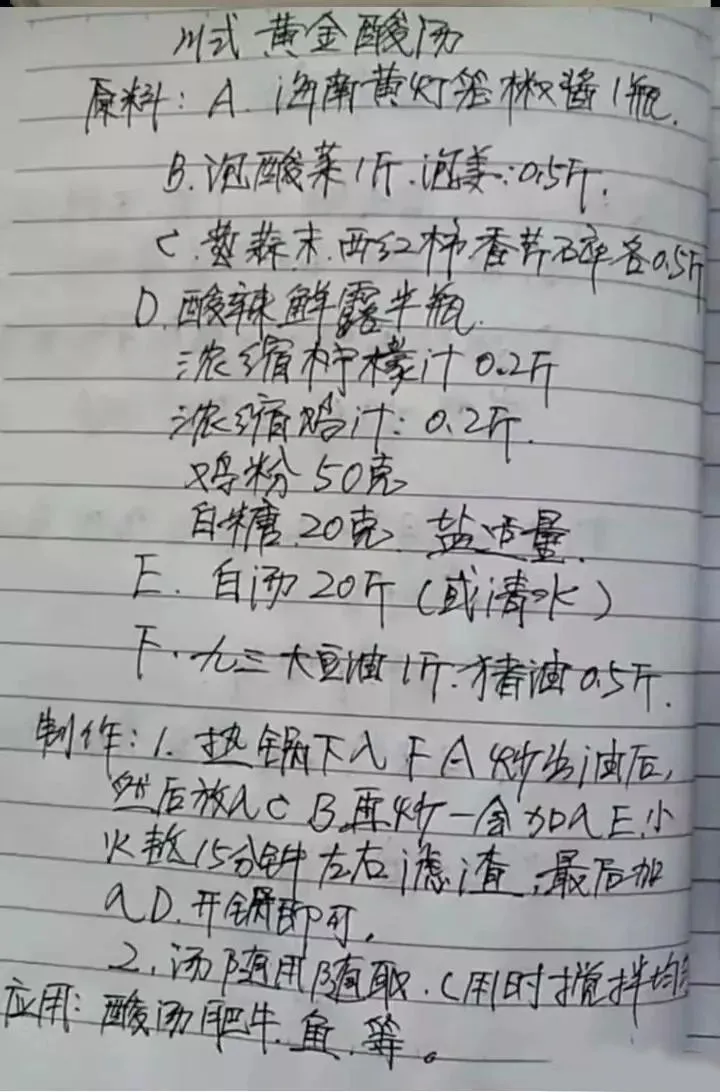 川式黄金酸汤
原料：A. 海南黄灯笼椒酱1瓶.
B.泡酸菜1斤.泡姜：0.5斤.
C.蒜末.西红柿香芹碎各0.5斤
D.酸辣鲜露半瓶.
浓缩柠檬汁0.2斤
浓缩鸡汁：0.2斤.
鸡粉50克
白糖.20克.盐适量.
E. 白汤20斤（或清水）
F.九三大豆油1斤.猪油0.5斤.
制作：1.热锅下入FA炒出油后,
然后放入CB再炒一会加入E.小
火熬15分钟左右滤渣,最后加
入D.开锅即可。
2.汤随用随取.（用时搅拌均
应用：酸汤肥牛.鱼.等。